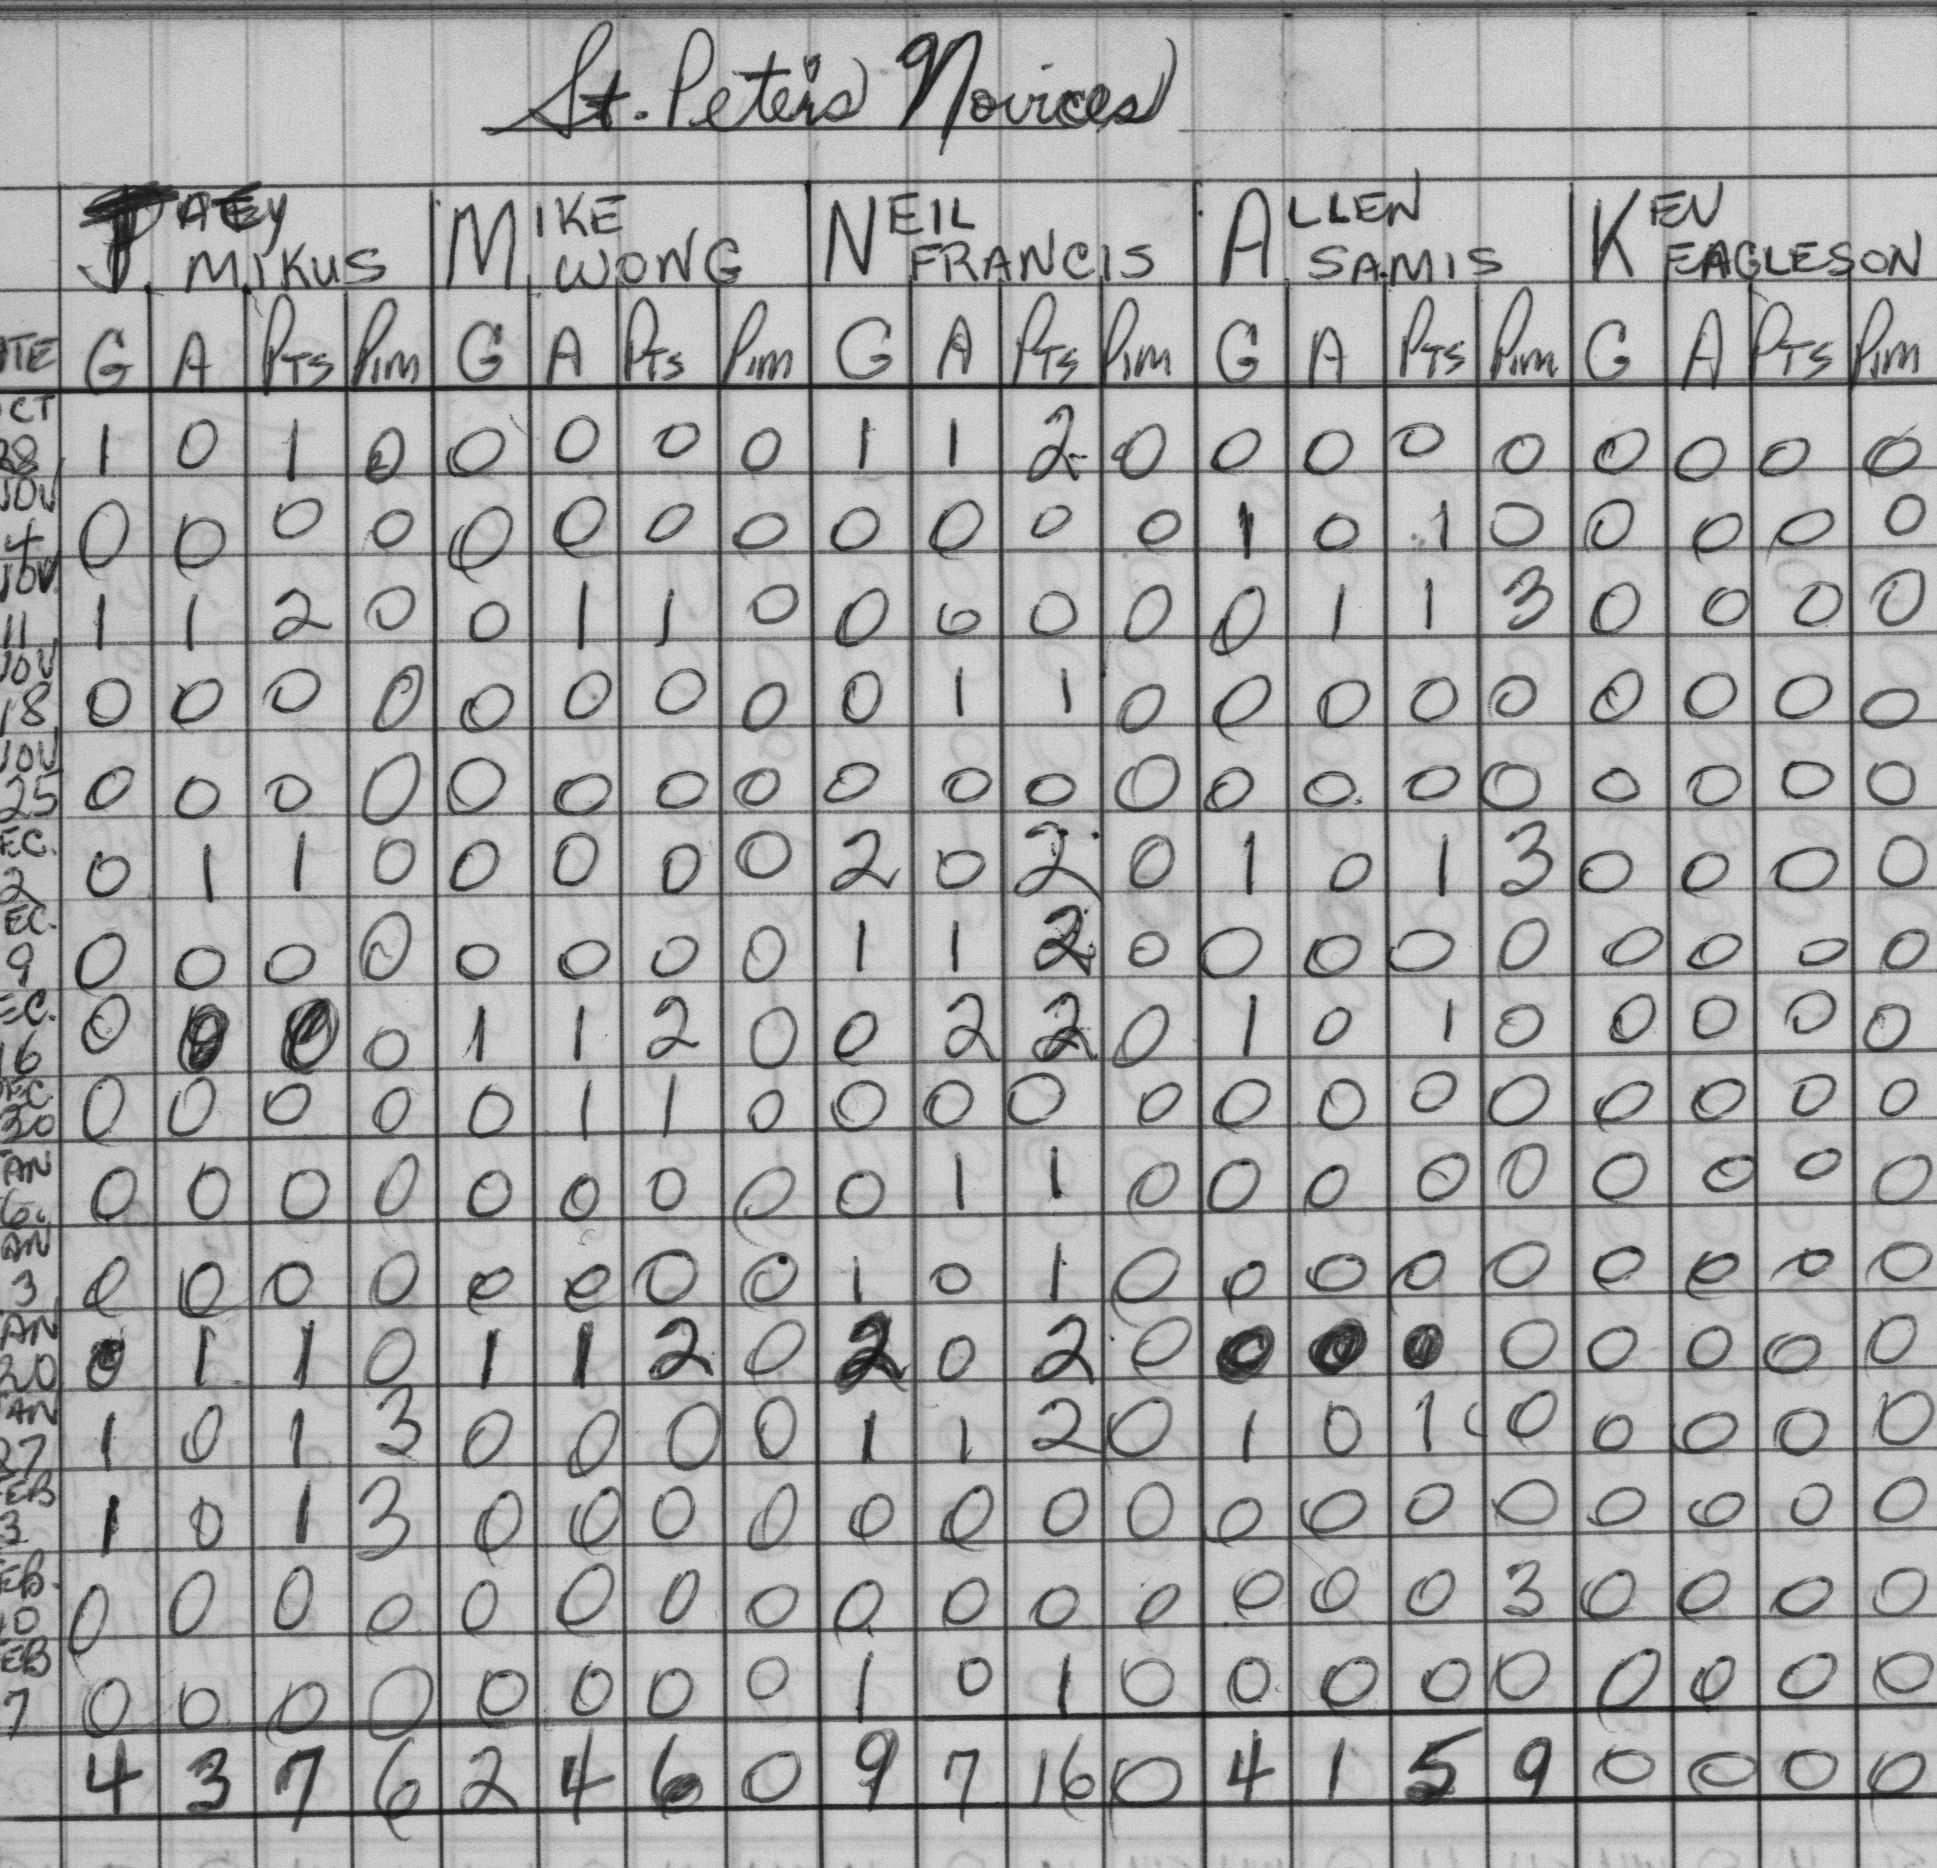 St. Peter's Novices
JATEY MIKUS MIKE WONG NEIL FRANCIS ALLEN SAMIS KEN EAGLESON
TE G A PTS PIM G A PTS PIM G A PTS PIM G A PTS PIM G A PTS PIM
CT 28 1 0 1 0 0 0 0 0 1 1 2 0 0 0 0 0 0 0 0 0
NOV 4 0 0 0 0 0 0 0 0 0 0 0 0 1 0 1 0 0 0 0 0
NOV 11 1 1 2 0 0 1 1 0 0 0 0 0 0 1 1 3 0 0 0 0
NOV 18 0 0 0 0 0 0 0 0 0 1 1 0 0 0 0 0 0 0 0 0
NOV 25 0 0 0 0 0 0 0 0 0 0 0 0 0 0 0 0 0 0 0 0
EC. 2 0 1 1 0 0 0 0 0 2 0 2 0 1 0 1 3 0 0 0 0
EC. 9 0 0 0 0 0 0 0 0 1 1 2 0 0 0 0 0 0 0 0 0
EC. 16 0 0 0 0 1 1 2 0 0 2 2 0 1 0 1 0 0 0 0 0
EC. 30 0 0 0 0 0 1 1 0 0 0 0 0 0 0 0 0 0 0 0 0
AN 6 0 0 0 0 0 0 0 0 0 1 1 0 0 0 0 0 0 0 0 0
AN 3 0 0 0 0 0 0 0 0 1 0 1 0 0 0 0 0 0 0 0 0
AN 20 0 1 1 0 1 1 2 0 2 0 2 0 0 0 0 0 0 0 0 0
AN 27 1 0 1 3 0 0 0 0 1 1 2 0 1 0 1 0 0 0 0 0
EB 3 1 0 1 3 0 0 0 0 0 0 0 0 0 0 0 0 0 0 0 0
EB. 10 0 0 0 0 0 0 0 0 0 0 0 0 0 0 0 3 0 0 0 0
EB 7 0 0 0 0 0 0 0 0 1 0 1 0 0 0 0 0 0 0 0 0
4 3 7 6 2 4 6 0 9 7 16 0 4 1 5 9 0 0 0 0